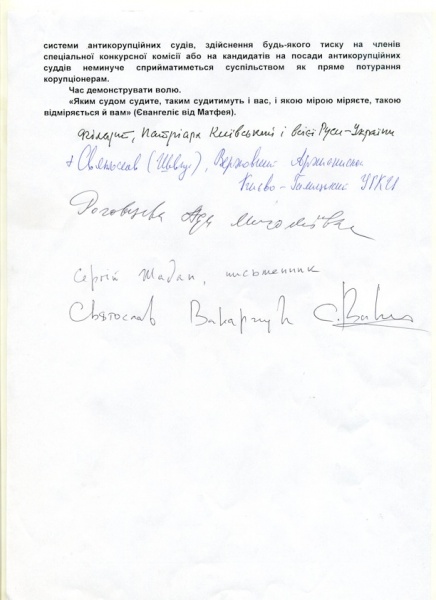 системи антикорупційних судів, здійснення будь-якого тиску на членів
спеціальної конкурсної комісії або на кандидатів на посади антикорупційних
суддів неминуче сприйматиметься суспільством як пряме потурання
корупціонерам.
Час демонструвати волю.
«Яким судом судите, таким судитимуть і вас, і якою мірою міряєте, такою
відміряється й вам» (Євангеліє від Матфея).
Філарет, Патріарх Київський і всієї Руси-України
+ Святослав (Шевчук), Верховний Архиєпископ
Києво-Галицький УГКЦ
Роговцева Ада Миколаївна
Сергій Жадан, письменник
Святослав Вакарчук С. Вакар